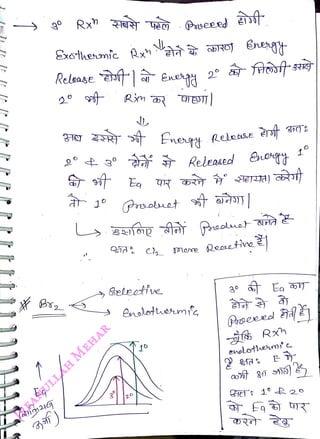 → 3° Rxⁿ सबसे पहले Proceed होगी
Exothermic Rxⁿ होने के कारण Energy
Release होगी | वो Energy 2° को मिलेगी जिससे
2° भी Rxn कर पाएगा |
अब इससे भी Energy Release होगी अतः
2° & 3° दोनों से Released Energy 1°
की भी Ea पार करने में सहायता करेगी
तो 1° Product भी बनेगा |
↳ इसलिए तीनों Product बनते हैं
अतः Cl₂ more Reactive है |
* Br₂ → Selective
→ Endothermic
3° की Ea कम
होने से वो
Proceed होती है |
चूँकि Rxⁿ
endothermic
है अतः E में
कमी आ जाती है |
अतः 1° & 2°
को Ea को पार
करने हेतु
↑ Ea
3° 2° 1°
KARAMULLAH MEHAR